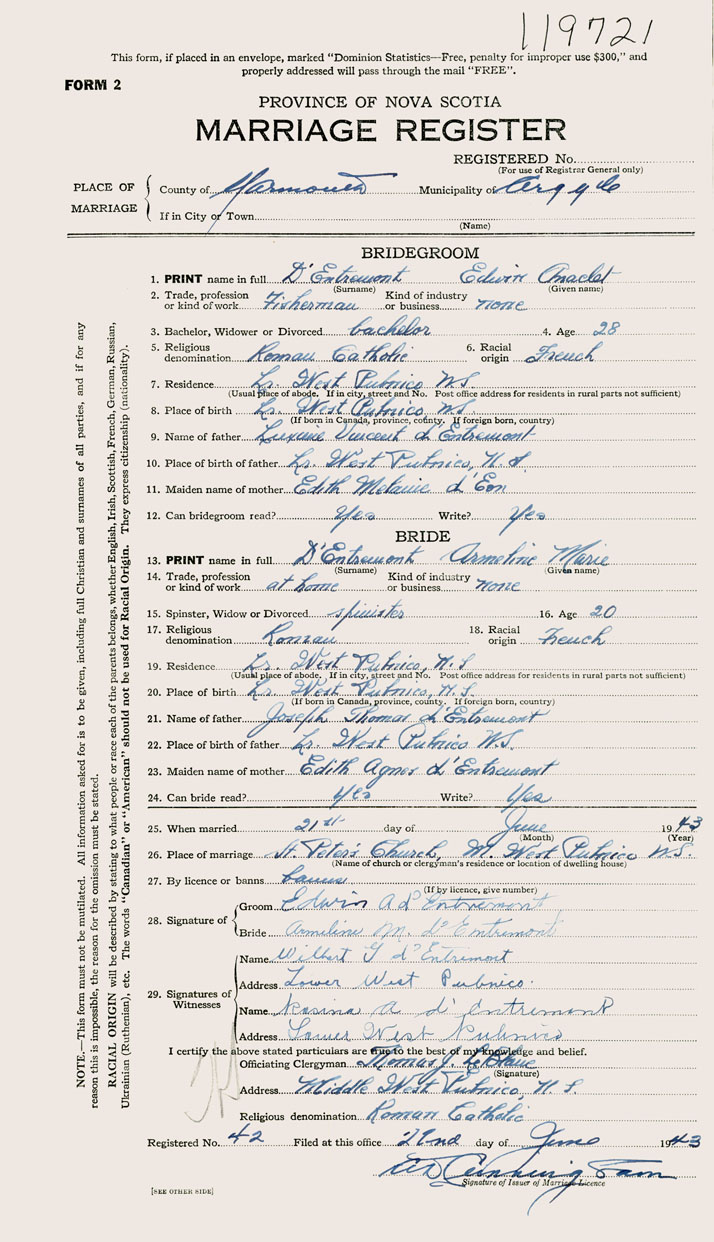 119721
This form, if placed in an envelope, marked "Dominion Statistics—Free, penalty for improper use $300," and
properly addressed will pass through the mail "FREE".
FORM 2
PROVINCE OF NOVA SCOTIA
MARRIAGE REGISTER
REGISTERED No.
(For use of Registrar General only)
PLACE OF MARRIAGE
County of Yarmouth Municipality of Argyle
If in City or Town
(Name)
BRIDEGROOM
1. PRINT name in full D'Entremont Edwin Anaclet
(Surname) (Given name)
2. Trade, profession or kind of work Fisherman Kind of industry or business none
3. Bachelor, Widower or Divorced bachelor 4. Age 28
5. Religious denomination Roman Catholic 6. Racial origin French
7. Residence Lr. West Pubnico N.S.
(Usual place of abode. If in city, street and No. Post office address for residents in rural parts not sufficient)
8. Place of birth Lr. West Pubnico, N.S.
(If born in Canada, province, county. If foreign born, country)
9. Name of father Vincent d'Entremont
10. Place of birth of father Lr. West Pubnico, N.S.
11. Maiden name of mother Edith Melanie d'Eon
12. Can bridegroom read? Yes Write? Yes
BRIDE
13. PRINT name in full D'Entremont Armeline Marie
(Surname) (Given name)
14. Trade, profession or kind of work at home Kind of industry or business none
15. Spinster, Widow or Divorced spinster 16. Age 20
17. Religious denomination Roman 18. Racial origin French
19. Residence Lr. West Pubnico, N.S
(Usual place of abode. If in city, street and No. Post office address for residents in rural parts not sufficient)
20. Place of birth Lr. West Pubnico, N.S.
(If born in Canada, province, county. If foreign born, country)
21. Name of father Joseph Thomas d'Entremont
22. Place of birth of father Lr. West Pubnico N.S.
23. Maiden name of mother Edith Agnes d'Entremont
24. Can bride read? Yes Write? Yes
25. When married 21st day of June 1943
(Month) (Year)
26. Place of marriage St. Peter's Church, M. West Pubnico N.S.
(Name of church or clergyman's residence or location of dwelling house)
27. By licence or banns banns
(If by licence, give number)
28. Signature of
Groom Edwin A d'Entremont
Bride Armeline M. d'Entremont
29. Signatures of Witnesses
Name Wilbert G d'Entremont
Address Lower West Pubnico.
Name Rosina A d'Entremont
Address Lower West Pubnico
I certify the above stated particulars are true to the best of my knowledge and belief.
Officiating Clergyman Thomas J. LeBlanc
(Signature)
Address Middle West Pubnico, N.S.
Religious denomination Roman Catholic
Registered No. 42 Filed at this office 22nd day of June 1943
Signature of Issuer of Marriage Licence
[SEE OTHER SIDE]
NOTE.—This form must not be mutilated. All information asked for is to be given, including full Christian and surnames of all parties, and if for any
reason this is impossible, the reason for the omission must be stated.
RACIAL ORIGIN will be described by stating to what people or race each of the parents belongs, whether English, Irish, Scottish, French, German, Russian,
Ukrainian (Ruthenian), etc. The words "Canadian" or "American" should not be used for Racial Origin. They express citizenship (nationality).